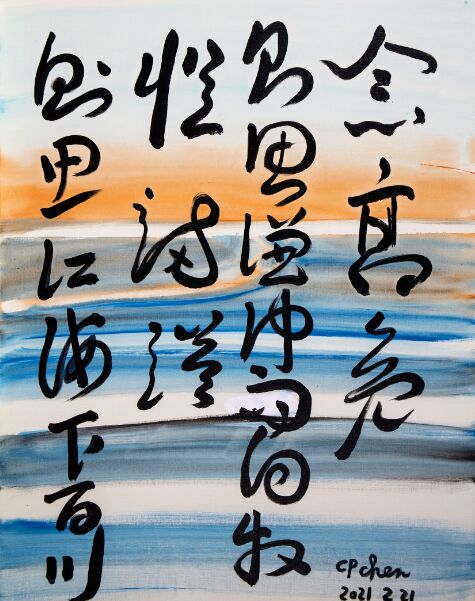 念高危
則思謙沖而自牧
懼滿溢
則思江海下百川
CP chen
2021 2.21